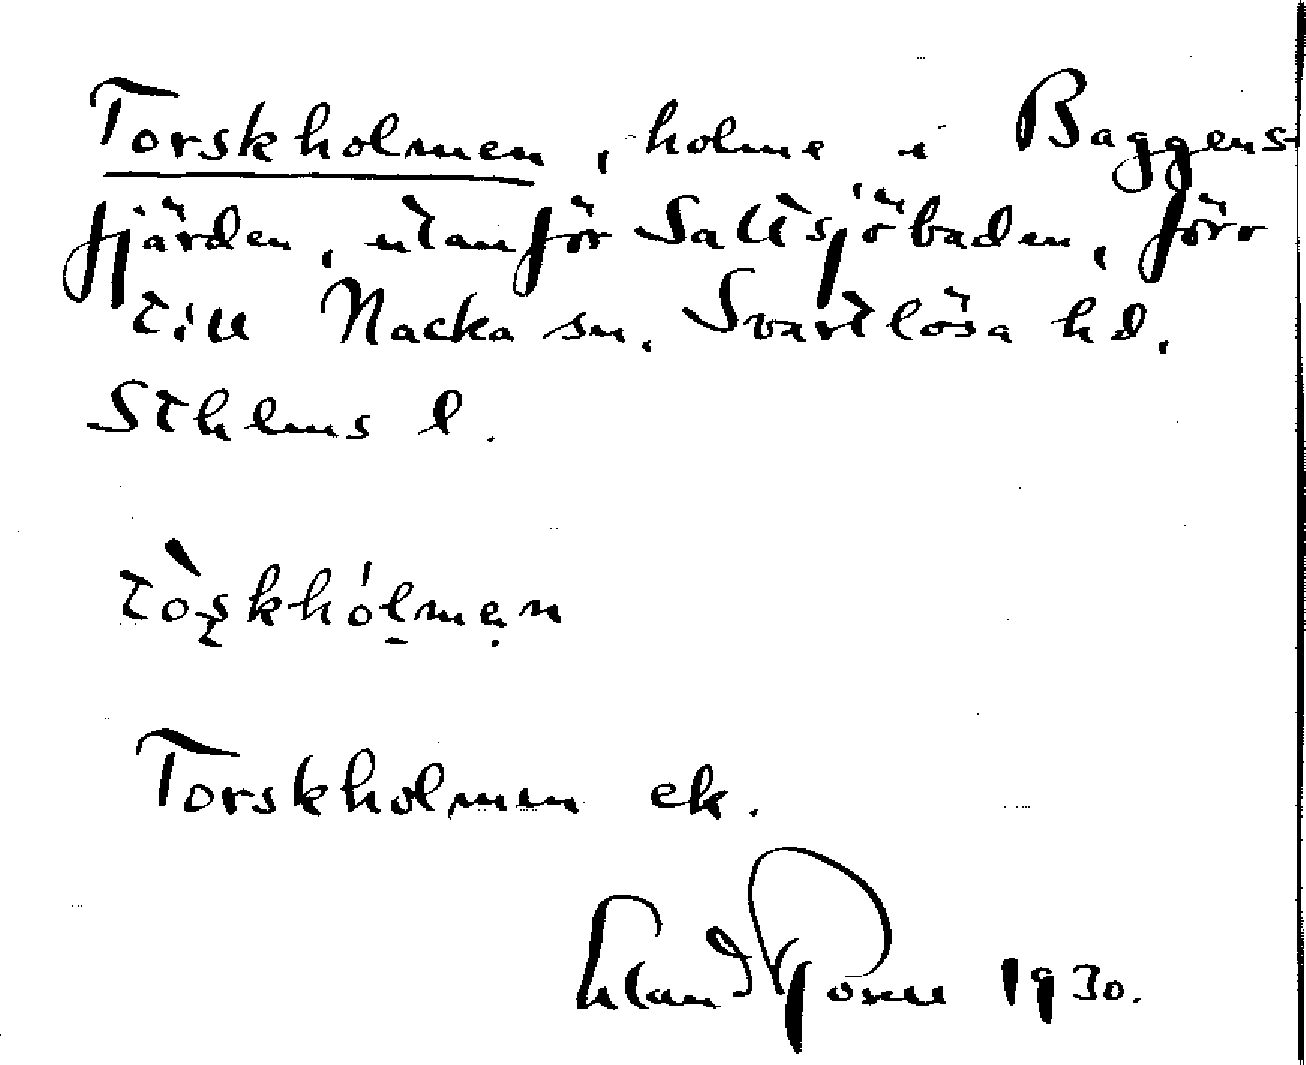 Torskholmen, holme i Baggens-
fjärden, utanför Saltsjöbaden, förr
till Nacka sn. Svartlösa hd.
Sthlms l.
tòskhólmen
Torskholmen ek.
Erland Rosell 1930.